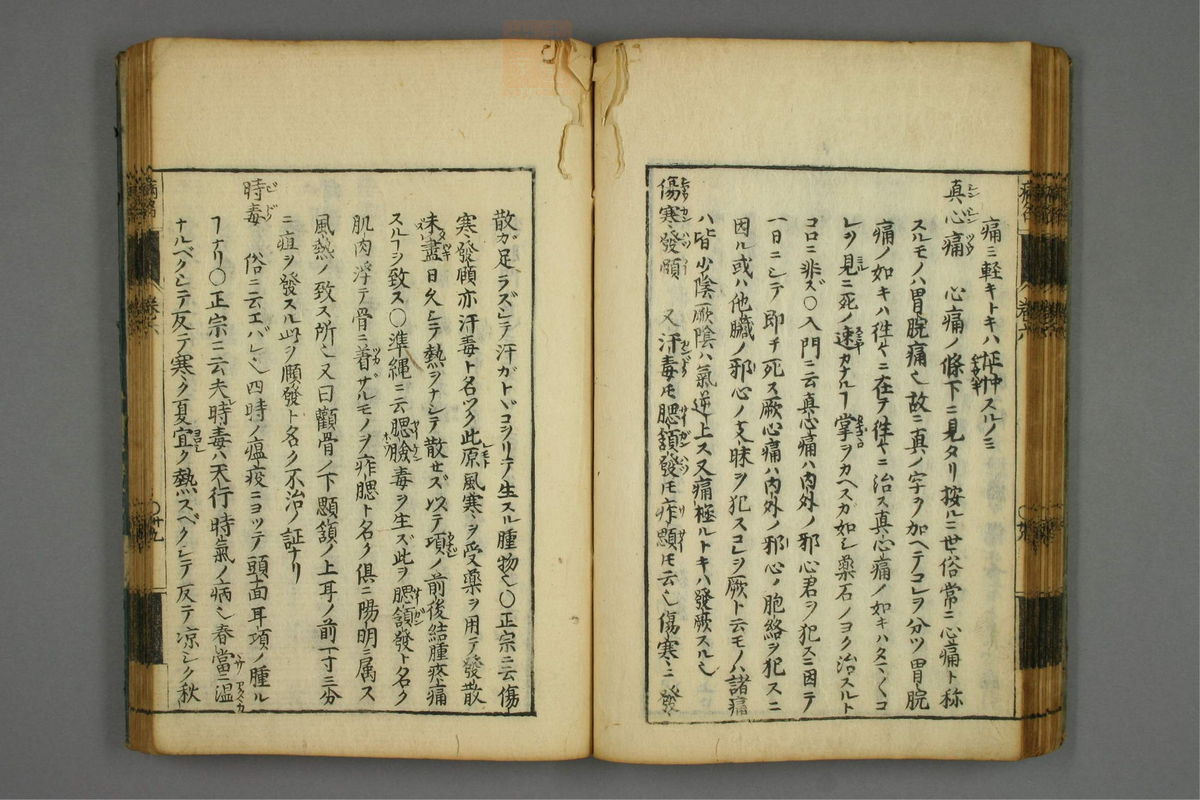 痛ミ軽キトキハ怔忡スルノミ
真心痛 心痛ノ條下ニ見タリ按ルニ世俗常ニ心痛ト称
スルモノハ胃脘痛也故ニ真ノ字ヲ加ヘテコレヲ分ツ胃脘
痛ノ如キハ徃々ニ在テ徃々ニ治ス真心痛ノ如キハタマ〱コ
レヲ見ニ死ノ速カナルヿ掌ヲカヘスガ如シ薬石ノヨク治スルト
コロニ非ズ〇入門ニ云真心痛ハ内外ノ邪心君ヲ犯スニ因テ
一日ニシテ即チ死ス厥心痛ハ内外ノ邪心ノ胞絡ヲ犯スニ
因ル或ハ他臓ノ邪心ノ支脉ヲ犯スコレヲ厥ト云モノハ諸痛
ハ皆少陰厥陰ハ氣逆上ス又痛極ルトキハ發厥スル也
傷寒發頤 又汗毒トモ腮頷發トモ痄腮トモ云也傷寒ニ發
散ガ足ラズシテ汗ガトヾコヲリテ生スル腫物也〇正宗ニ云傷
寒發頤亦汗毒ト名ツク此原風寒ヲ受薬ヲ用テ發散
味盡日久シテ熱ヲナシテ散セズ以テ項ノ前後結腫疼痛
スルヿヲ致ス〇準繩ニ云腮臉毒ヲ生ズ此ヲ腮頷發ト名ク
肌肉浮テ骨ニ着ザルモノヲ痄腮ト名ク倶ニ陽明ニ属ス
風熱ノ致ス所也又曰顴骨ノ下腮頷ノ上耳ノ前一寸三分
ニ疽ヲ發スル此ヲ頤發ト名ク不治ノ証ナリ
時毒 俗ニ云エバレ也四時ノ瘟疫ニヨッテ頭面耳項ノ腫ル
ヿナリ〇正宗ニ云夫時毒ハ天行時氣ノ病也春當ニ温
ナルベクシテ反テ寒ク夏宜ク熱スベクシテ反テ凉シク秋